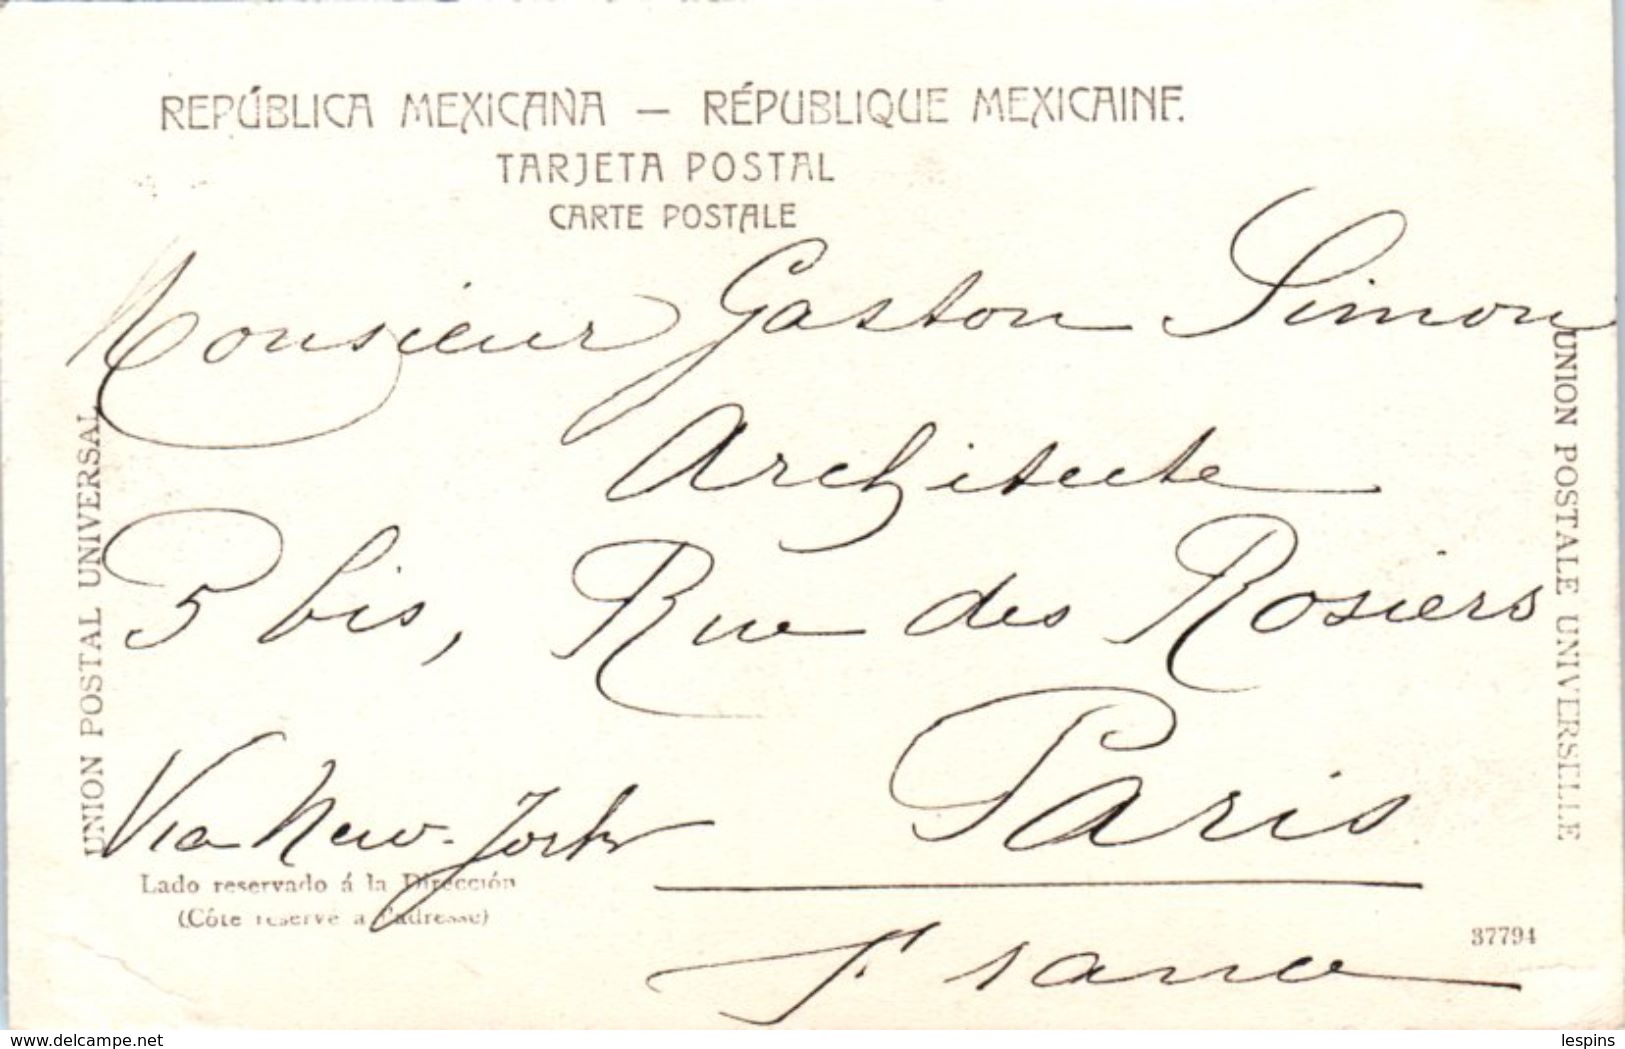 REPÚBLICA MEXICANA — RÉPUBLIQUE MEXICAINE.
TARJETA POSTAL
CARTE POSTALE
Monsieur Gaston Simon
Architecte
5 bis, Rue des Rosiers
Paris
Via New-York
France
UNION POSTAL UNIVERSAL
UNION POSTALE UNIVERSELLE
Lado reservado á la Dirección
(Côte reservé a l'adresse)
37794
www.delcampe.net
lespins